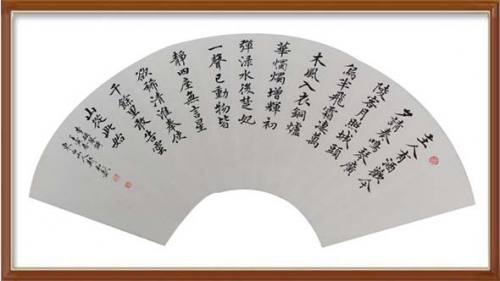 主人有酒歡今
夕請奏鳴琴廣
陵客月照城頭
烏半飛霜凄萬
木風入衣銅爐
華燭燭增輝初
彈淥水後楚妃
一聲已動物皆
靜四座無言星
欲稀清淮奉使
千餘里敢告雲
山從此始